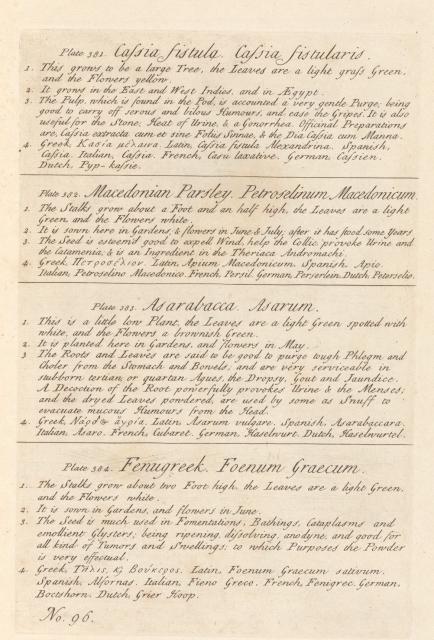 Plate 381. Cassia fistula. Cassia fistularis.
1. This grows to be a large Tree, the Leaves are a light grass Green,
and the Flowers yellow.
2. It grows in the East and West Indies, and in Ægypt.
3. The Pulp, which is found in the Pod, is accounted a very gentle Purge; being
good to carry off serous and bilous Humours, and ease the Gripes. It is also
useful for the Stone, Heat of Urine, & a Gonorrhea. Officinal Preparations
are, Cassia extracta cum et sine Foliis Sennæ, & the Dia Cassia cum Manna.
4. Greek, Κασία μέλαινα. Latin, Cassia fistula Alexandrina. Spanish,
Cassia. Italian, Cassia. French, Casse laxative. German, Cassien.
Dutch, Pyp-kassie.
Plate 382. Macedonian Parsley. Petroselinum Macedonicum.
1. The Stalks grow about a Foot and an half high, the Leaves are a light
Green, and the Flowers white.
2. It is sown here in Gardens, & flowers in June & July, after it has stood some Years
3. The Seed is esteem'd good to expell Wind, help the Collic, provoke Urine and
the Catamenia, & is an Ingredient in the Theriaca Andromachi.
4. Greek, Πετροσέλινον. Latin, Apium Macedonicum. Spanish, Apio.
Italian, Petroselino Macedonico. French, Persil. German, Peterlein. Dutch, Peterselie.
Plate 383. Asarabacca. Asarum.
1. This is a little low Plant, the Leaves are a light Green spotted with
white, and the Flowers a brownish Green.
2. It is planted here in Gardens, and flowers in May.
3 The Roots and Leaves are said to be good to purge tough Phlegm and
Choler from the Stomach and Bowels; and are very serviceable in
stubborn tertian or quartan Agues, the Dropsy, Gout and Jaundice.
A Decoction of the Root powerfully provokes Urine & the Menses;
and the dryed Leaves powdered, are used by some as Snuff to
evacuate mucous Humours from the Head.
4. Greek, Νάρδος ἀγρία. Latin, Asarum vulgare. Spanish, Asarabaccara.
Italian, Asaro. French, Cabaret. German, Haselwurt. Dutch, Haselwurtel.
Plate 384. Fenugreek. Foenum Graecum.
1. The Stalks grow about two Foot high, the Leaves are a light Green,
and the Flowers white.
2. It is sown in Gardens, and flowers in June.
3. The Seed is much used in Fomentations, Bathings, Cataplasms and
emollient Glysters; being ripening, dissolving, anodyne, and good for
all kind of Tumors and Swellings; to which Purposes the Powder
is very effectual.
4. Greek, Τῆλις, ϗ Βούκερος. Latin, Foenum Graecum sativum.
Spanish, Alfornas. Italian, Fieno Greco. French, Fenigrec. German,
Boctshorn. Dutch, Grier Hoop.
No. 96.